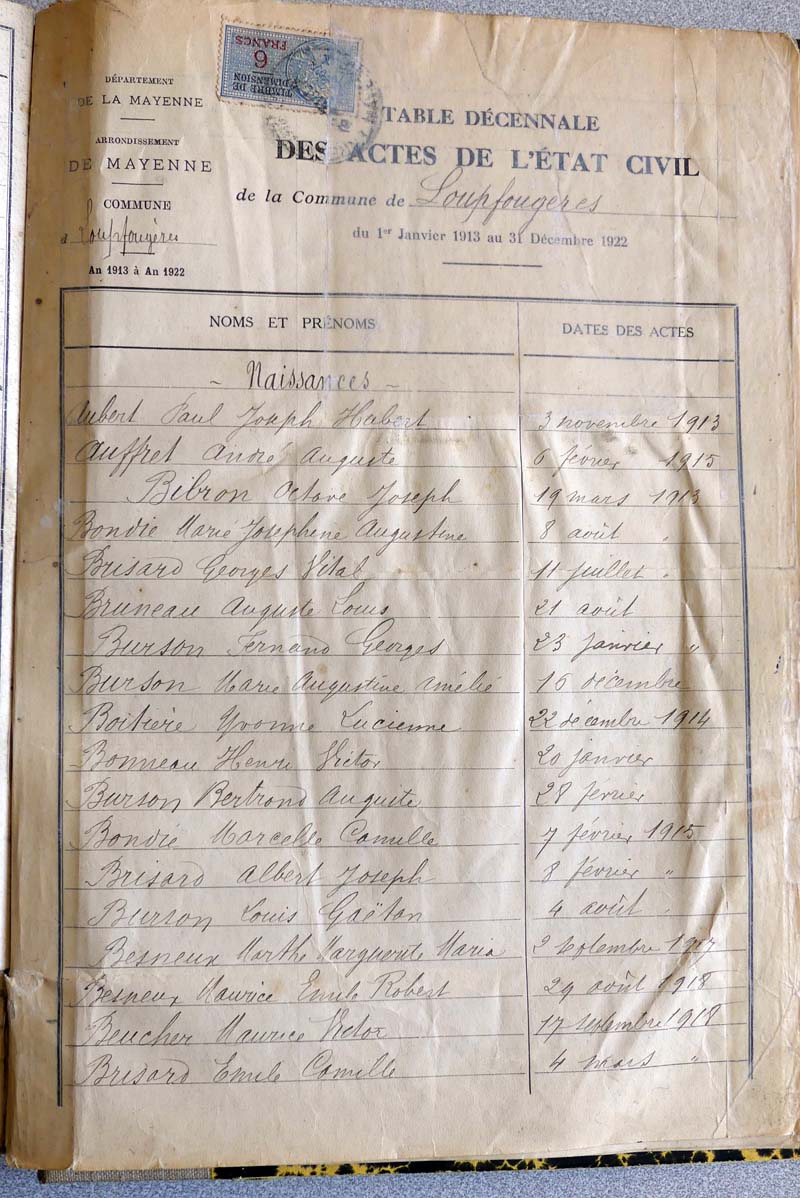 TIMBRE DE
DIMENSION
6
FRANCS
DÉPARTEMENT
DE LA MAYENNE
ARRONDISSEMENT
DE MAYENNE
COMMUNE
d Loupfougères
An 1913 à An 1922
TABLE DÉCENNALE
DES ACTES DE L'ÉTAT CIVIL
de la Commune de Loupfougères
du 1er Janvier 1913 au 31 Décembre 1922
NOMS ET PRÉNOMS DATES DES ACTES
- Naissances -
Aubert Paul Joseph Hubert 3 novembre 1913
Auffret André Auguste 6 février 1915
Bibron Octave Joseph 19 mars 1913
Bondie Marie Josephine Augustine 8 août "
Brisard Georges Vital 11 juillet "
Bruneau Auguste Louis 21 août
Burson Fernand Georges 23 janvier "
Burson Marie Augustine Amélie 16 décembre
Boitière Yvonne Lucienne 22 décembre 1914
Bonneau Henri Victor 20 janvier
Burson Bertrand Auguste 28 février
Bondié Marcelle Camille 7 février 1915
Brisard Albert Joseph 8 février "
Burson Louis Gaëtan 4 août "
Besneux Marthe Marguerite Maria 2 septembre 1917
Besneux Maurice Emile Robert 29 août 1918
Beucher Maurice Victor 17 septembre 1918
Brisard Emile Camille 4 mars "